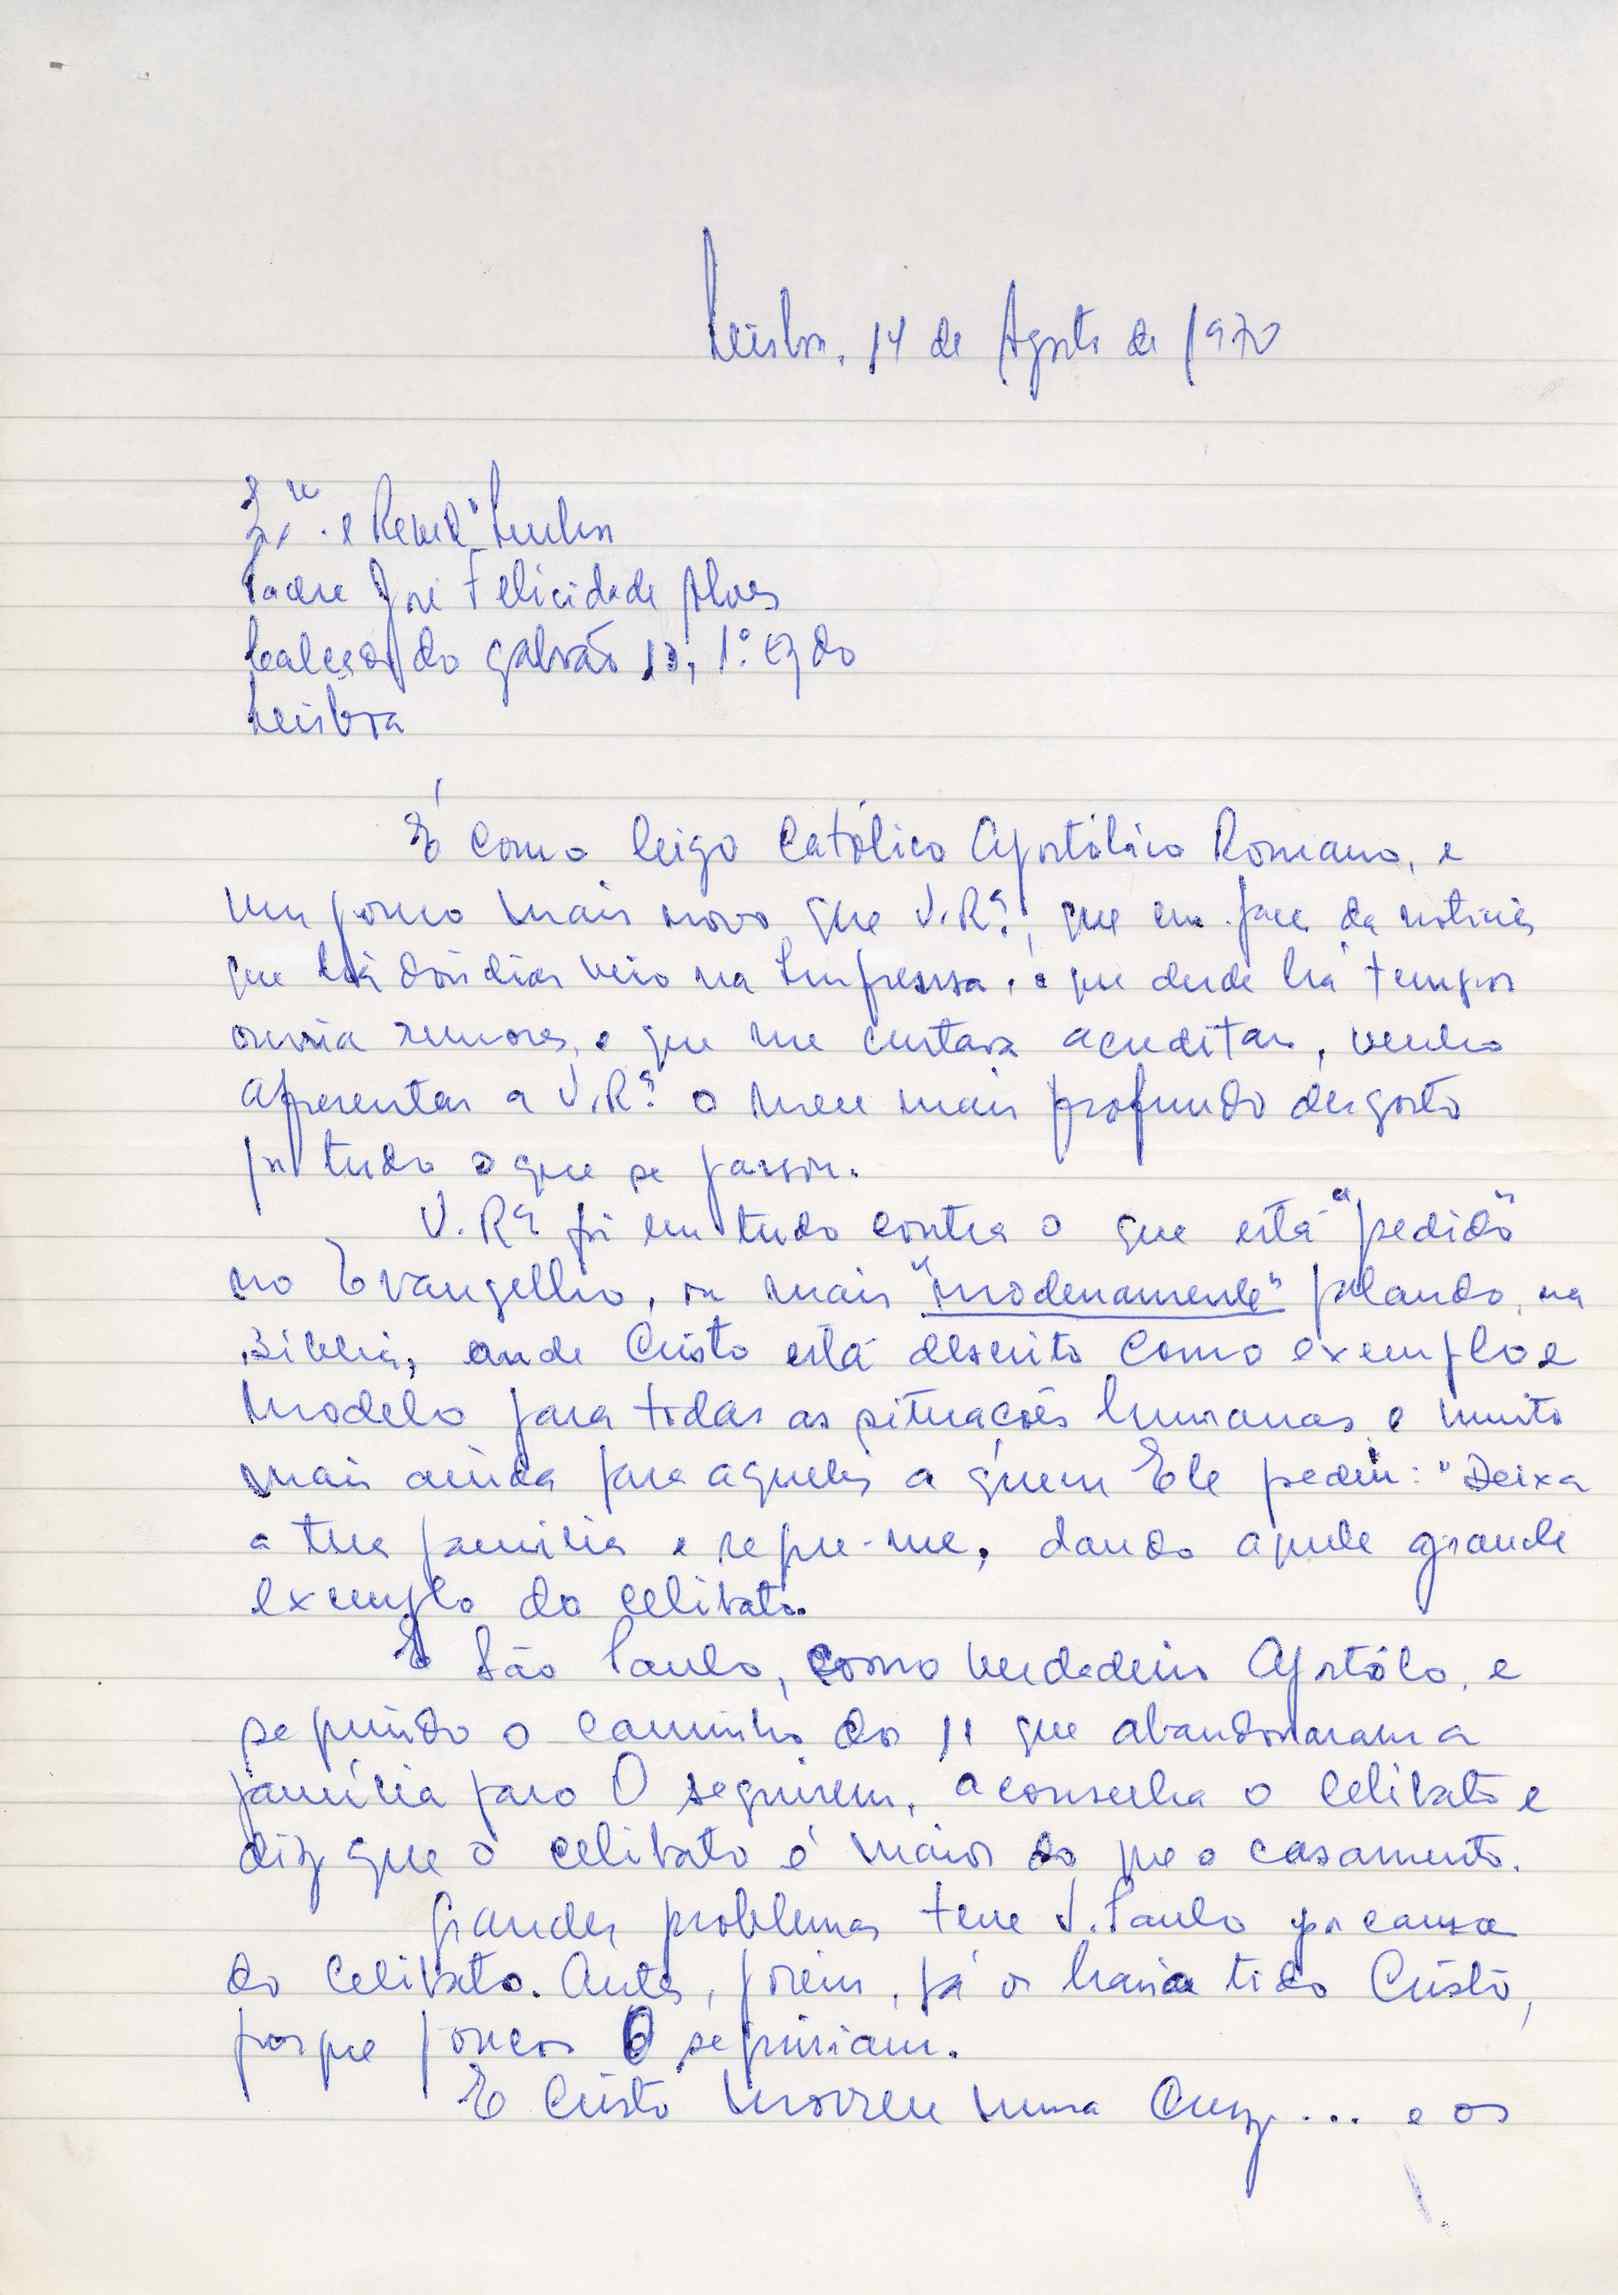 Lisboa, 14 de Agosto de 1970
Exmo. e Revmo Senhor
Padre José Felicidade Alves
Calçada do Galvão 13, 1º Eqdo
Lisboa
É como leigo Católico Apostólico Romano, e
um pouco mais novo que V. Rª, que em face da noticia
que há dois dias veio na Imprensa, e que desde há tempos
ouvia rumores, e que me custava acreditar, venho
apresentar a V. Rª o meu mais profundo desgosto
por tudo o que se passou.
V. Rª foi em tudo contra o que está "pedido"
no Evangelho, ou mais "modernamente" falando, na
Biblia, onde Cristo está descrito como exemplo e
modelo para todas as situações humanas, e muito
mais ainda para aqueles a quem Ele pediu: "Deixa
a tua familia e segue-me, dando aquele grande
exemplo do celibato.
E São Paulo, como verdadeiro Apostólo, e
seguindo o caminho dos 11 que abandonaram a
família para O seguirem, aconselha o Celibato e
diz que o celibato é maior do que o casamento.
Grandes problemas teve S. Paulo por causa
do Celibato. Antes, porém, já os havia tido Cristo,
porque poucos O seguiriam.
E Cristo morreu numa Cruz... e os